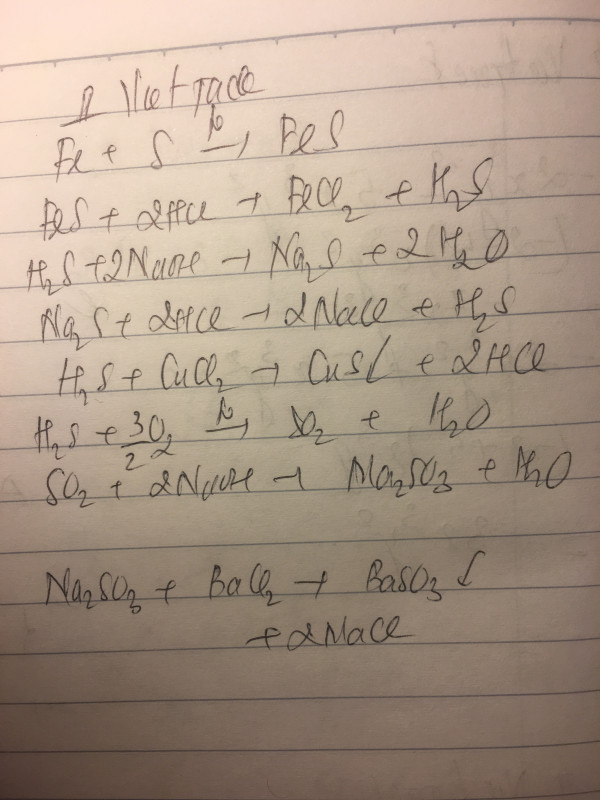 Fe + S t° → FeS
FeS + 2HCl → FeCl₂ + H₂S
H₂S + 2NaOH → Na₂S + 2H₂O
Na₂S + 2HCl → 2NaCl + H₂S
H₂S + CuCl₂ → CuS↓ + 2HCl
H₂S + 3/2 O₂ t° → SO₂ + H₂O
SO₂ + 2NaOH → Na₂SO₃ + H₂O
Na₂SO₃ + BaCl₂ → BaSO₃↓
+ 2NaCl